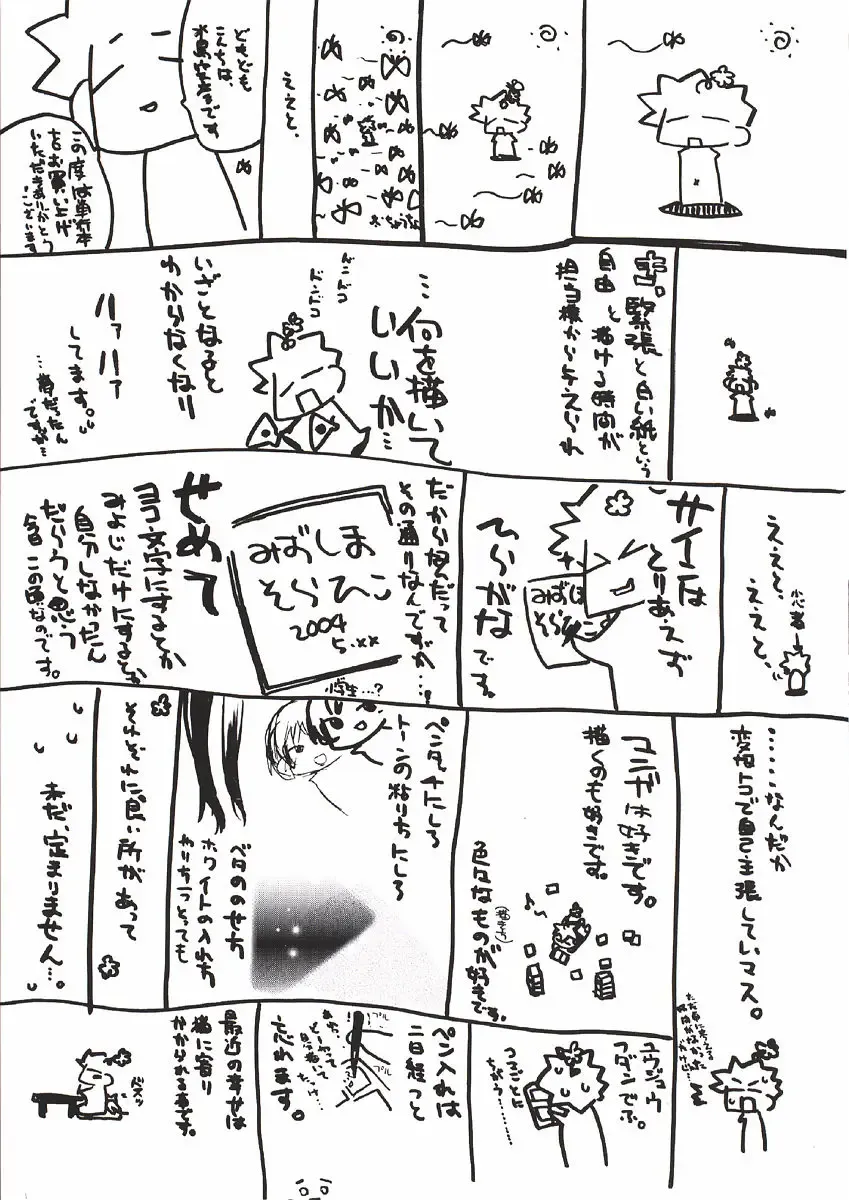 どもども
こんちは、
水島空彦です。
この度は単行本
をお買い上げ
いただきありがとう
ございます
ええと、
おちょうちょ
緊張と白い紙という
自由と描ける時間が
担当様から与えられ
ドンドコ
ドンドコ
…何を描いて
いいか…
いざとなると
わからなくなり
ハァハァ
してます。
…夢だったん
ですが…
ええと、
ええと、
小心者
サインは
とりあえず
ひらがなです。
みずしま
そらひこ
だから何だって
その通りなんですが…
みずしま
そらひこ
2004
5.××
小学生…?
せめて
ヨコ文字にするとか
みよじだけにするとか
自分しなかったん
だろうと思う
今日この頃なのです。
……なんだか
変なトコで自己主張していマス。
マンガは好きです。
描くのも好きです。
色々なものが好きです。
ペンタッチにしろ
トーンの貼り方にしろ
ベタののせ方
ホワイトの入れ方
ひとつとっても
それぞれに良い所があって
まだ、定まりません…。
ユウジュウ
フダンでぶ。
つまるところ
ちがう……
ペン入れは
二日経つと
忘れます。
プル
プル
最近の幸せは
猫に寄り
かかられる事です。